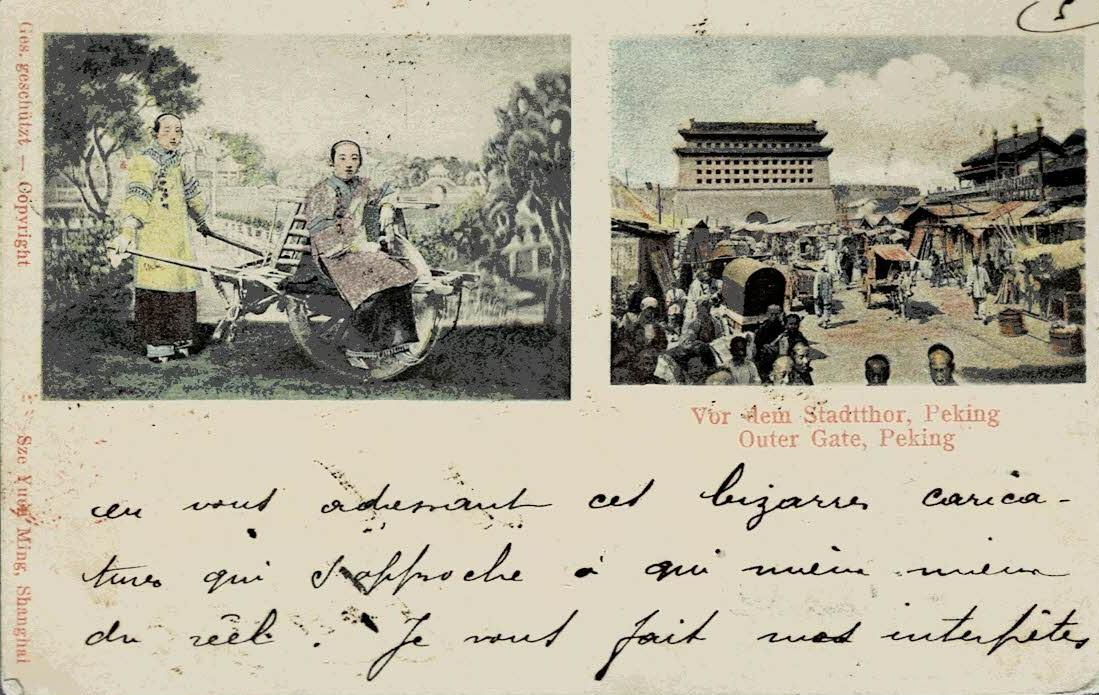 5
Ges. geschützt — Copyright
Sze Yuen Ming, Shanghai
Vor dem Stadtthor, Peking
Outer Gate, Peking
en vous adressant ces bizarres carica-
tures qui s'approche à qui mieux mieux
du réel. Je vous fait mes interpêtes